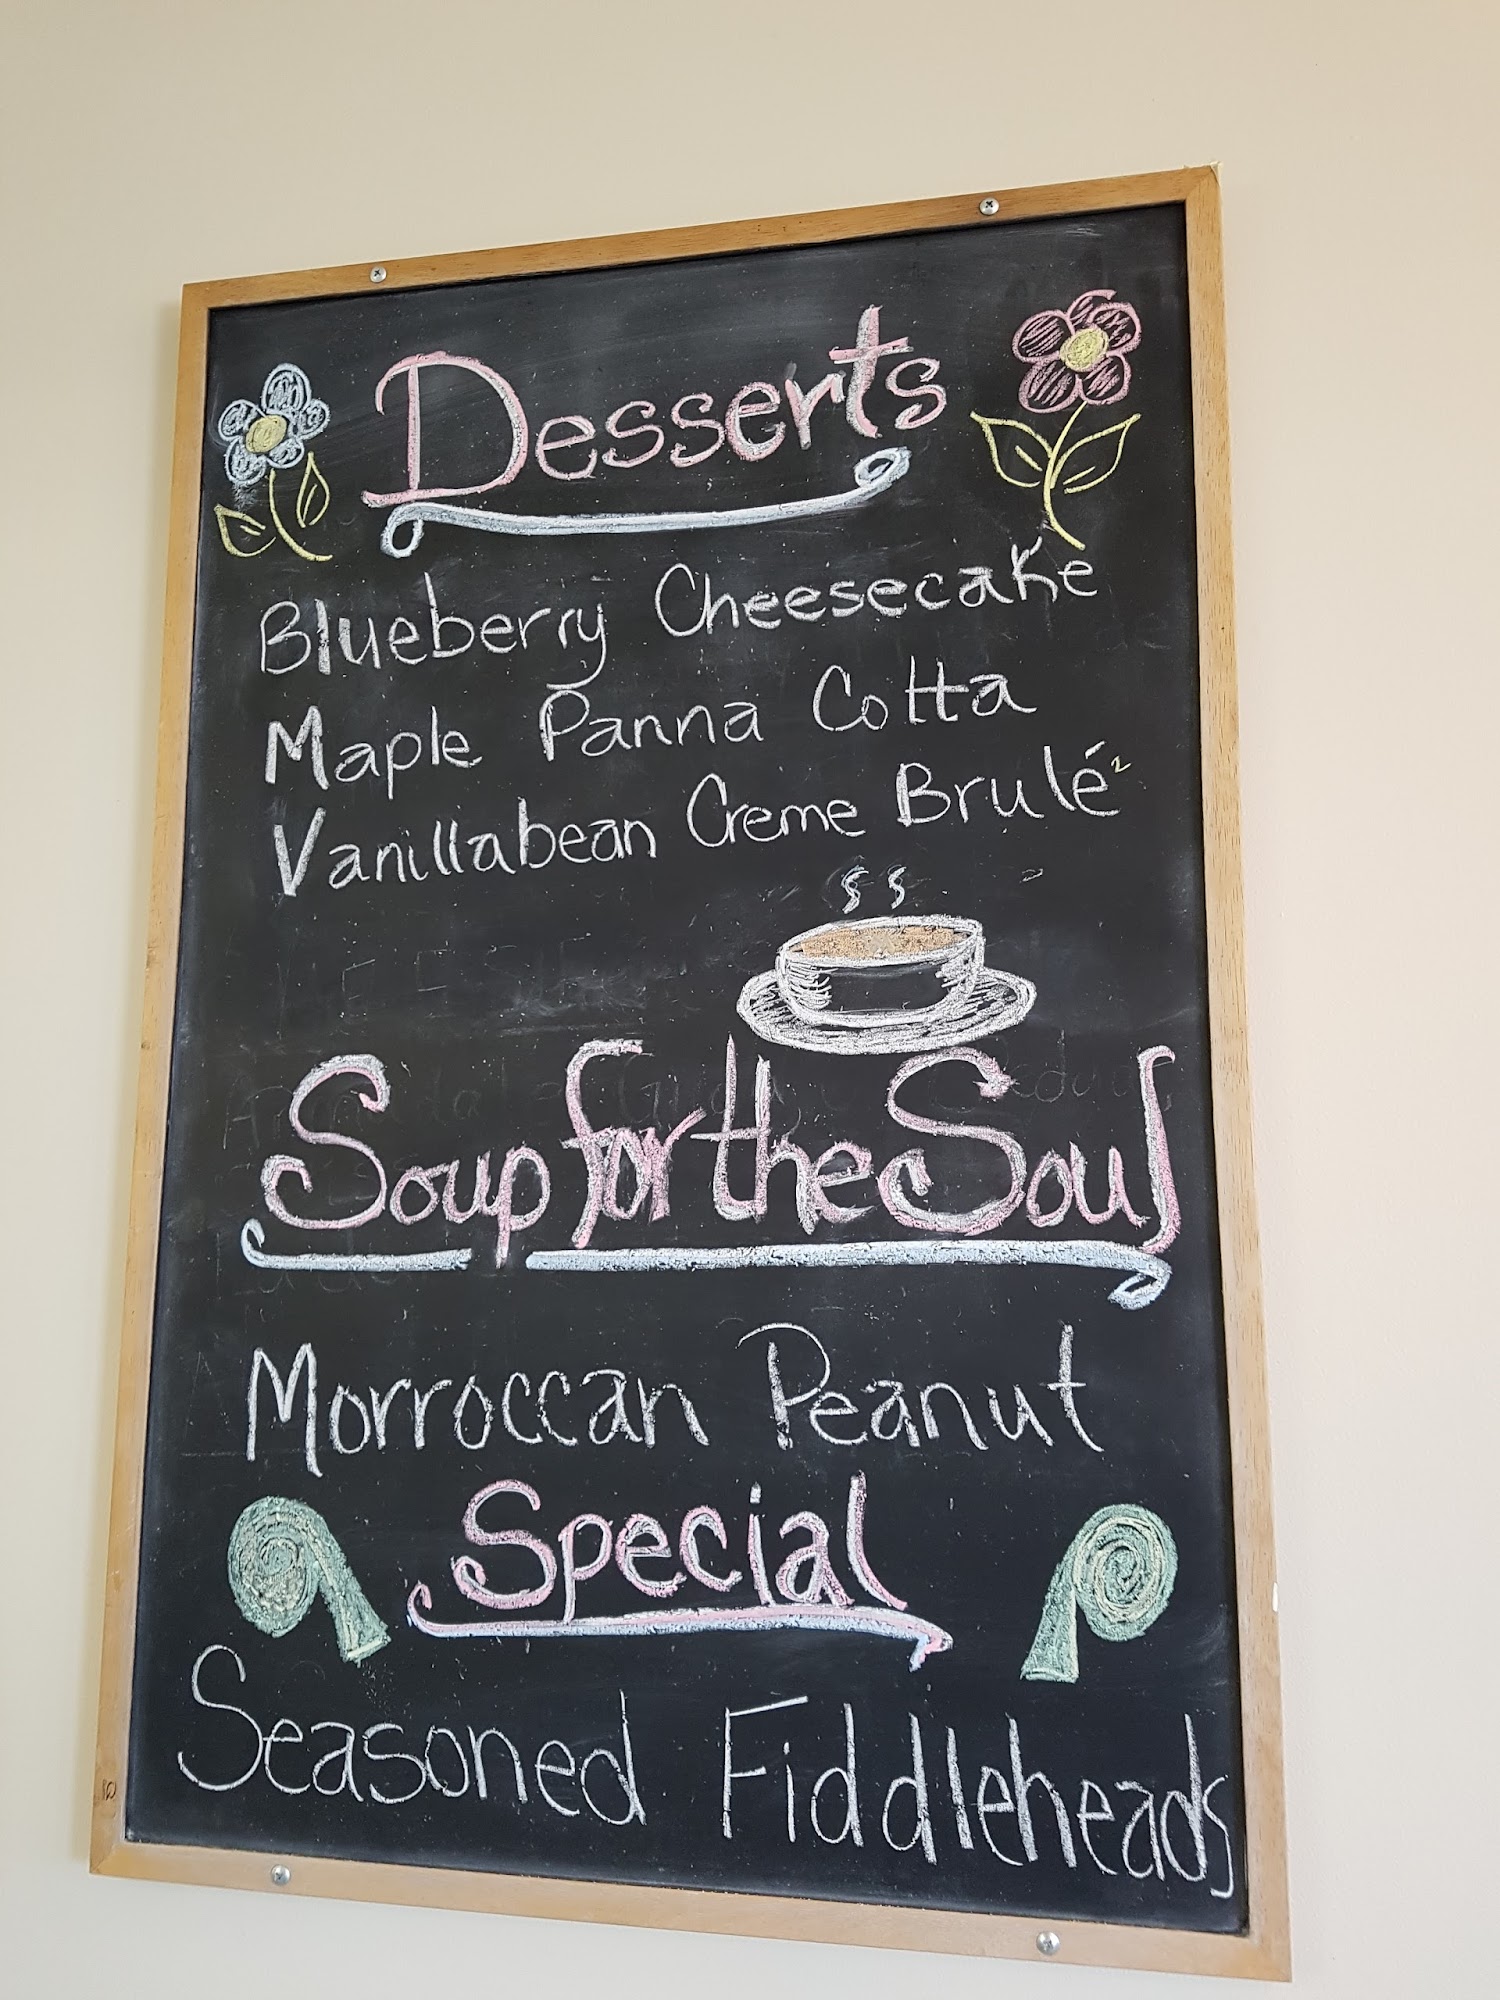 Desserts
Blueberry Cheesecake
Maple Panna Cotta
Vanillabean Creme Brulé
Soup for the Soul
Morroccan Peanut
Special
Seasoned Fiddleheads